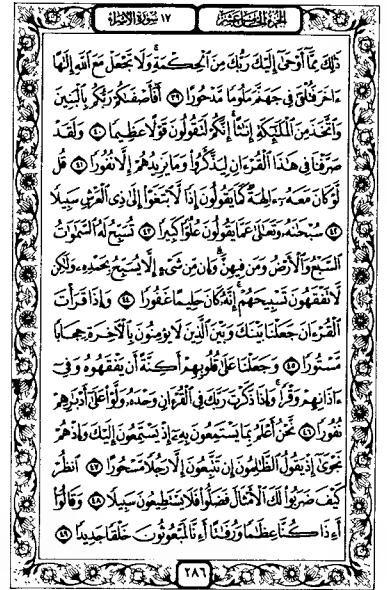 الجزء الخامس عشر ١٧ سورة الإسراء
ذَٰلِكَ مِمَّآ أَوْحَىٰٓ إِلَيْكَ رَبُّكَ مِنَ ٱلْحِكْمَةِ ۗ وَلَا تَجْعَلْ مَعَ ٱللَّهِ إِلَٰهًا
ءَاخَرَ فَتُلْقَىٰ فِى جَهَنَّمَ مَلُومًا مَّدْحُورًا ٣٩ أَفَأَصْفَىٰكُمْ رَبُّكُم بِٱلْبَنِينَ
وَٱتَّخَذَ مِنَ ٱلْمَلَٰٓئِكَةِ إِنَٰثًا ۚ إِنَّكُمْ لَتَقُولُونَ قَوْلًا عَظِيمًا ٤٠ وَلَقَدْ
صَرَّفْنَا فِى هَٰذَا ٱلْقُرْءَانِ لِيَذَّكَّرُوا۟ وَمَا يَزِيدُهُمْ إِلَّا نُفُورًا ٤١ قُل
لَّوْ كَانَ مَعَهُۥٓ ءَالِهَةٌ كَمَا يَقُولُونَ إِذًا لَّٱبْتَغَوْا۟ إِلَىٰ ذِى ٱلْعَرْشِ سَبِيلًا
٤٢ سُبْحَٰنَهُۥ وَتَعَٰلَىٰ عَمَّا يَقُولُونَ عُلُوًّا كَبِيرًا ٤٣ تُسَبِّحُ لَهُ ٱلسَّمَٰوَٰتُ
ٱلسَّبْعُ وَٱلْأَرْضُ وَمَن فِيهِنَّ ۚ وَإِن مِّن شَىْءٍ إِلَّا يُسَبِّحُ بِحَمْدِهِۦ وَلَٰكِن
لَّا تَفْقَهُونَ تَسْبِيحَهُمْ ۗ إِنَّهُۥ كَانَ حَلِيمًا غَفُورًا ٤٤ وَإِذَا قَرَأْتَ
ٱلْقُرْءَانَ جَعَلْنَا بَيْنَكَ وَبَيْنَ ٱلَّذِينَ لَا يُؤْمِنُونَ بِٱلْءَاخِرَةِ حِجَابًا
مَّسْتُورًا ٤٥ وَجَعَلْنَا عَلَىٰ قُلُوبِهِمْ أَكِنَّةً أَن يَفْقَهُوهُ وَفِىٓ
ءَاذَانِهِمْ وَقْرًا ۚ وَإِذَا ذَكَرْتَ رَبَّكَ فِى ٱلْقُرْءَانِ وَحْدَهُۥ وَلَّوْا۟ عَلَىٰٓ أَدْبَٰرِهِمْ
نُفُورًا ٤٦ نَّحْنُ أَعْلَمُ بِمَا يَسْتَمِعُونَ بِهِۦٓ إِذْ يَسْتَمِعُونَ إِلَيْكَ وَإِذْ هُمْ
نَجْوَىٰٓ إِذْ يَقُولُ ٱلظَّٰلِمُونَ إِن تَتَّبِعُونَ إِلَّا رَجُلًا مَّسْحُورًا ٤٧ ٱنظُرْ
كَيْفَ ضَرَبُوا۟ لَكَ ٱلْأَمْثَالَ فَضَلُّوا۟ فَلَا يَسْتَطِيعُونَ سَبِيلًا ٤٨ وَقَالُوٓا۟
أَءِذَا كُنَّا عِظَٰمًا وَرُفَٰتًا أَءِنَّا لَمَبْعُوثُونَ خَلْقًا جَدِيدًا ٤٩
٢٨٦